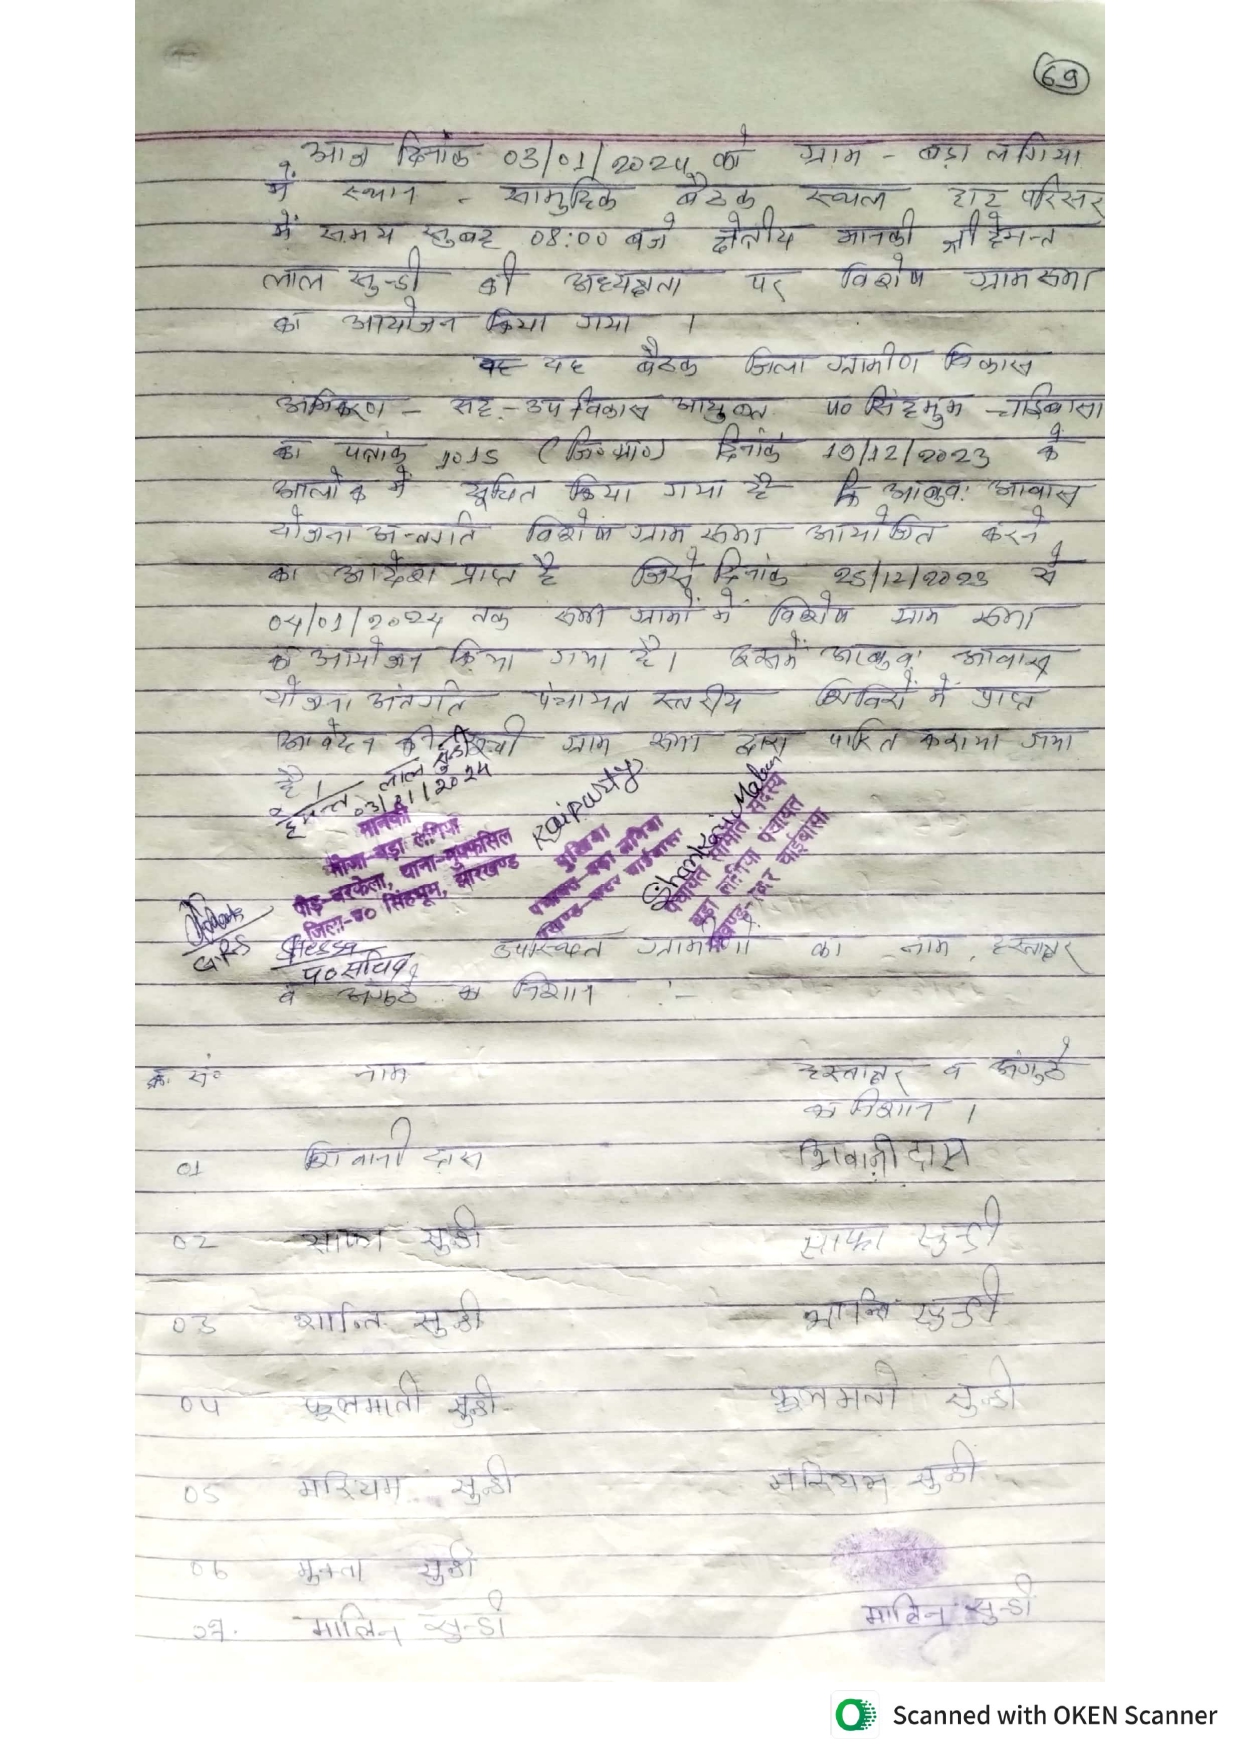 69
आज दिनांक 03/01/2024 को ग्राम - बड़ा लगिया
में स्थान - सामुहिक बैठक स्थल हाट परिसर
में समय सुबह 08:00 बजे क्षेत्रीय मानकी श्री हेमन्त
लाल सुन्डी की अध्यक्षता पर विशेष ग्रामसभा
का आयोजन किया गया ।
यह बैठक जिला ग्रामीण विकास
अभिकरण - सह - उप विकास आयुक्त प० सिंहभुम चाईबासा
का पत्रांक 1015 (जि०ग्रा०) दिनांक 19/12/2023 के
आलोक में सूचित किया गया है कि आबुवा आवास
योजना अन्तर्गत विशेष ग्राम सभा आयोजित करने
का आदेश प्राप्त है जिसे दिनांक 25/12/2023 से
04/01/2024 तक सभी ग्रामों में विशेष ग्राम सभा
का आयोजन किया गया है। इसमें आबुवा आवास
योजना अंतर्गत पंचायत स्तरीय शिविरों में प्राप्त
आवेदन की सूची ग्राम सभा द्वारा पारित कराया गया
है।
हेमन्त लाल सुन्डी
03/01/2024
मानकी
मौजा-बड़ा लगिया
पीड़-बरकेला, थाना-मुफ्फसिल
जिला-प० सिंहभूम, झारखण्ड
मुखिया
पंचायत-बड़ा लगिया
प्रखण्ड-सदर चाईबासा
पंचायत समिति सदस्य
बड़ा लगिया पंचायत
प्रखण्ड-सदर चाईबासा
GRS
प० सचिव
उपस्थित ग्रामीणों का नाम, हस्ताक्षर
व अंगुठे का निशान :-
क्र. सं० नाम हस्ताक्षर व अंगुठे
का निशान ।
01 शिवानी दास शिवानी दास
02 साफा सुन्डी साफा सुन्डी
03 शान्ति सुन्डी शान्ति सुन्डी
04 फूलमती सुन्डी फुलमती सुन्डी
05 मरियम सुन्डी मरियम सुन्डी
06 मुक्ता सुन्डी
07. मालिन सुन्डी मालिन सुन्डी
Scanned with OKEN Scanner